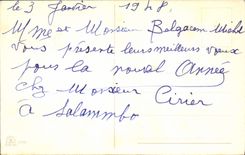 le 3 Janvier 1948.
Mme et Monsieur Belgacem
Vous présente leurs meilleurs vœux
pour la nouvel Année
chez Monsieur Cirier
à Salammbo